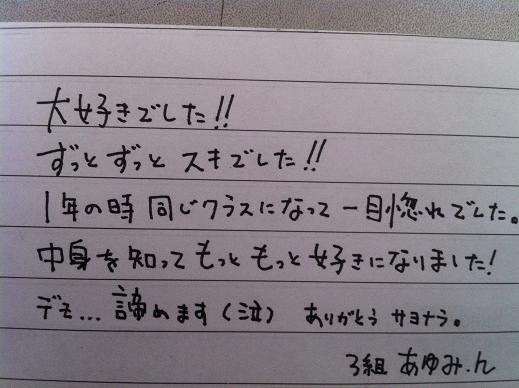 大好きでした!!
ずっとずっとスキでした!!
1年の時同じクラスになって一目惚れでした。
中身を知ってもっともっと好きになりました!
デモ...諦めます(泣) ありがとうサヨナラ。
3組 あゆみ.h